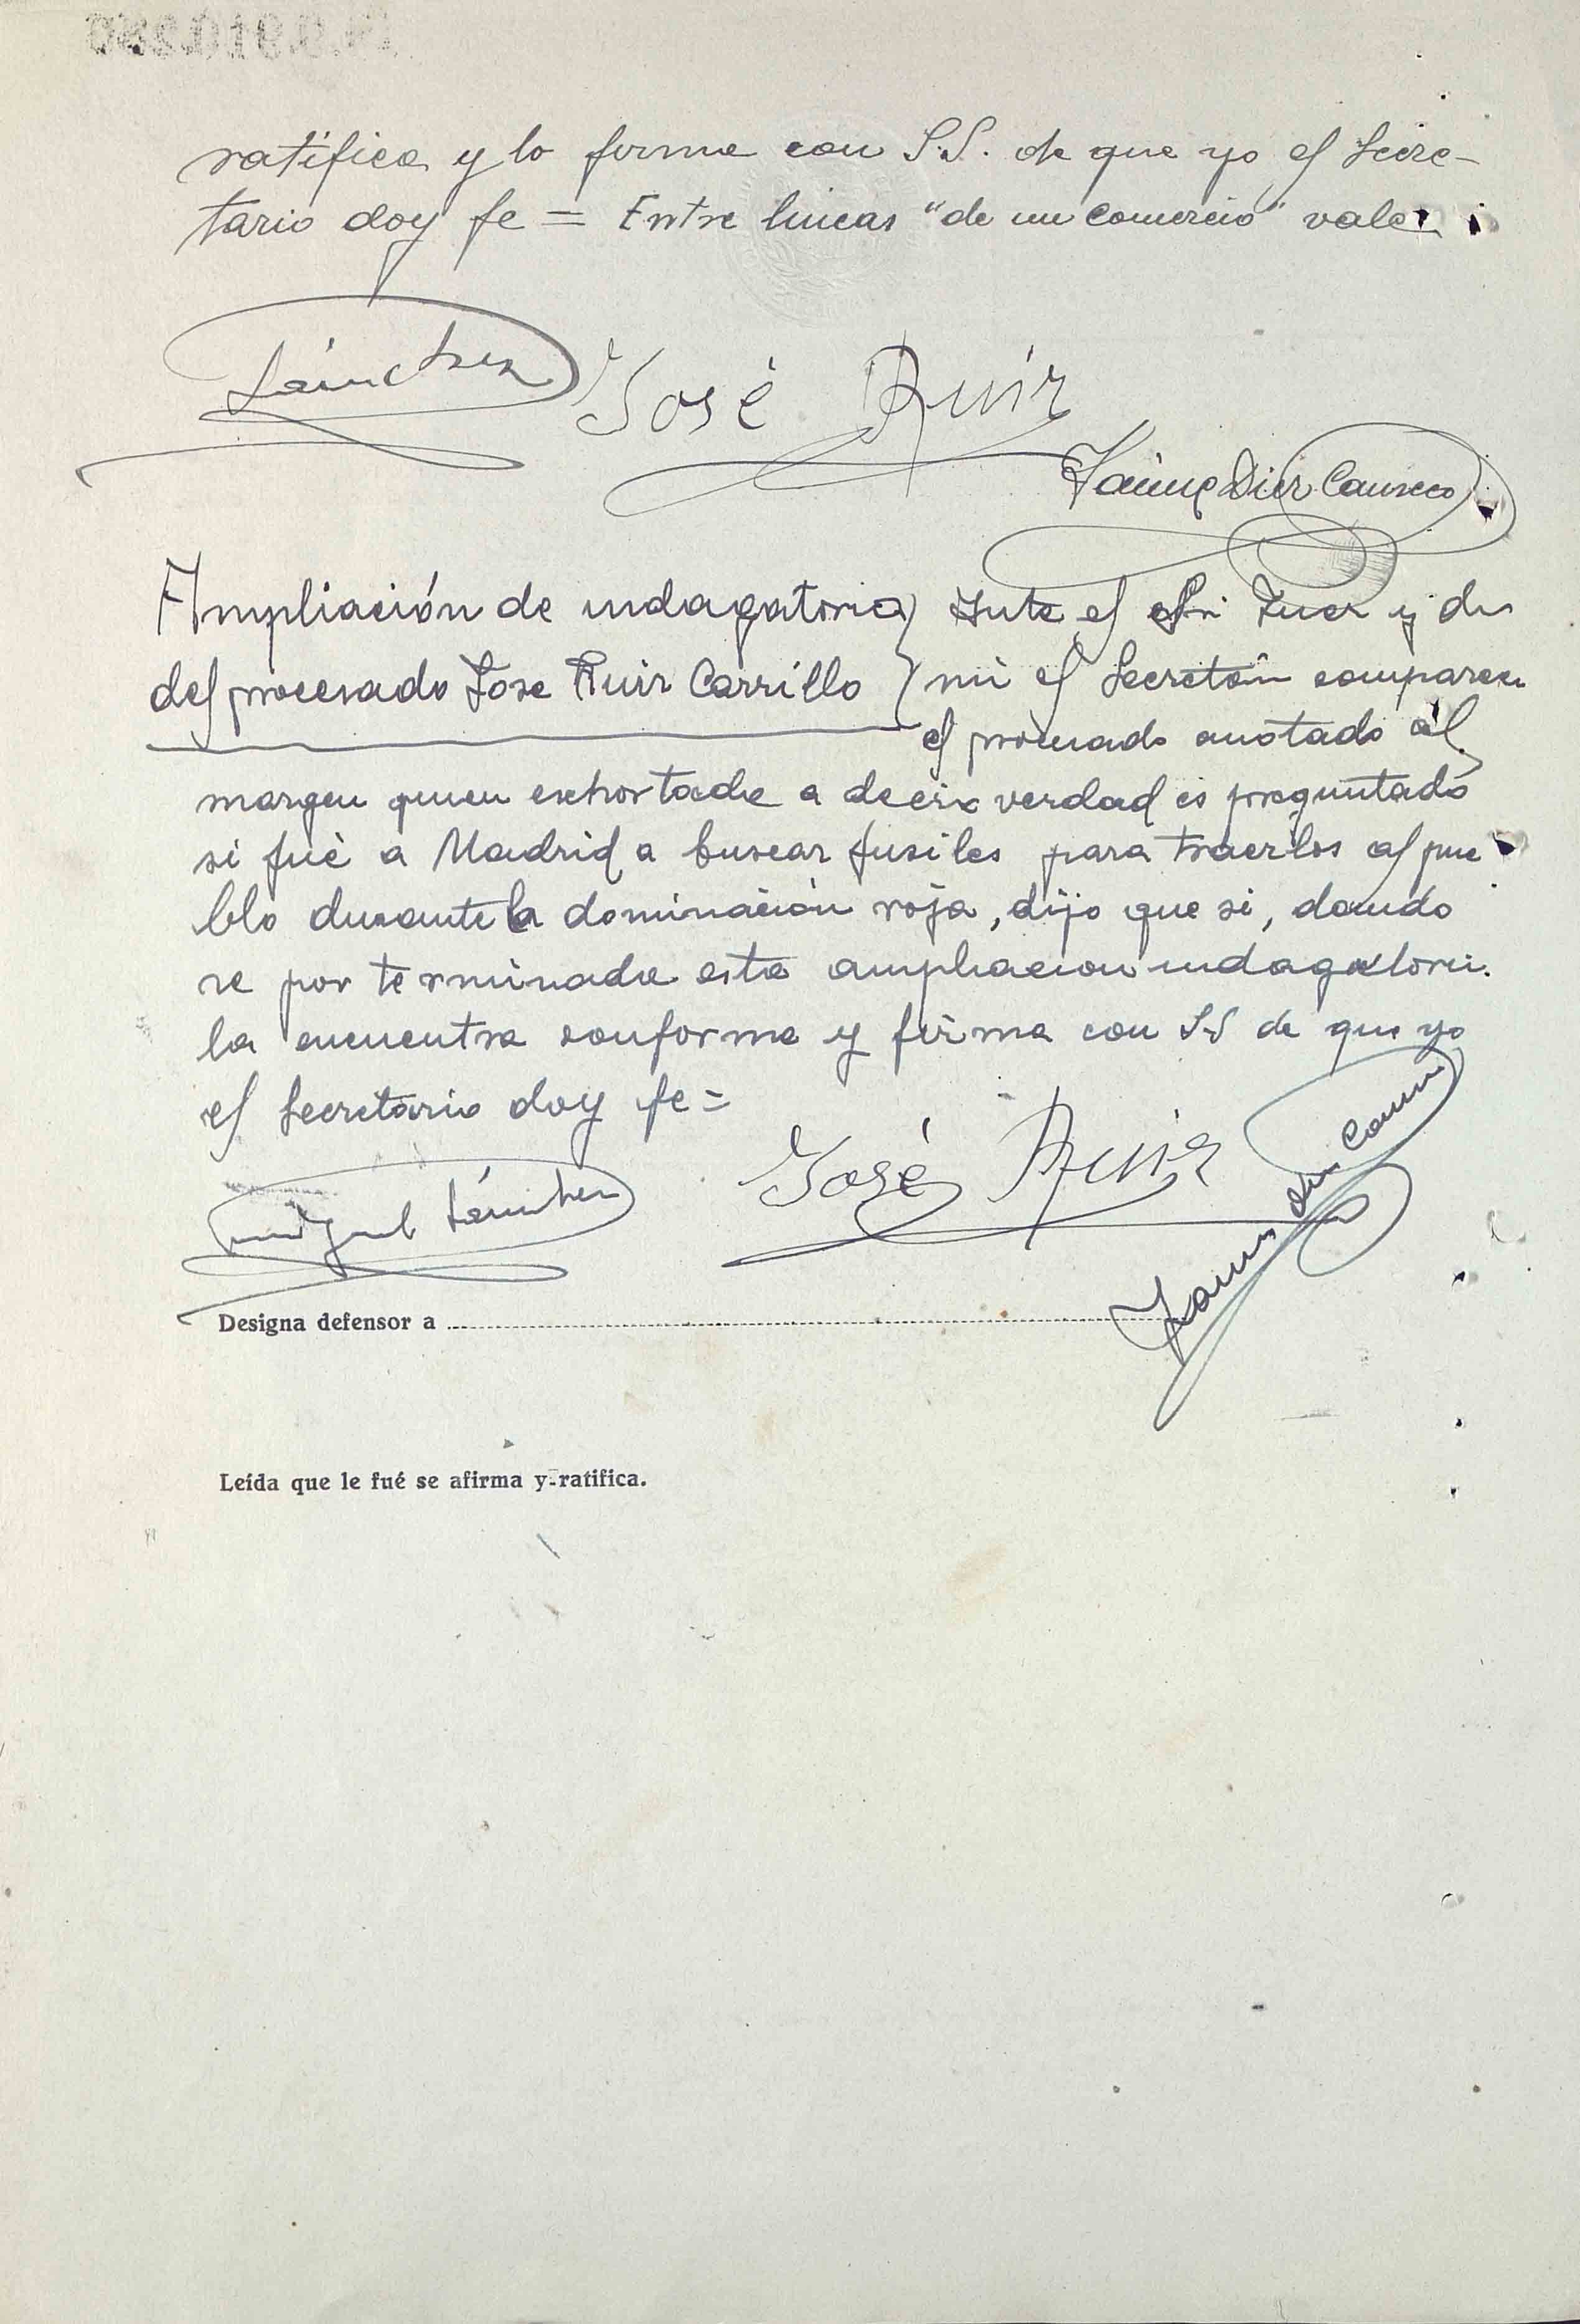 ratifica y lo firma con S.S. de que yo el Secre-
tario doy fe = Entre lineas "de un comercio" vale
Sánchez José Ruiz
Jaime Diez Canseco
Ampliación de indagatoria
del procesado Jose Ruiz Carrillo
Ante el Sr Juez y de
mi el Secretario comparece
el procesado anotado al
margen quien exhortado a decir verdad es preguntado
si fué a Madrid a buscar fusiles para traerlos al pue
blo durante la dominación roja, dijo que si, dando
se por terminada esta ampliacion indagatoria.
la encuentra conforme y firma con S.S de que yo
el Secretario doy fe =
Miguel Sánchez José Ruiz
Designa defensor a
Leída que le fué se afirma y ratifica.